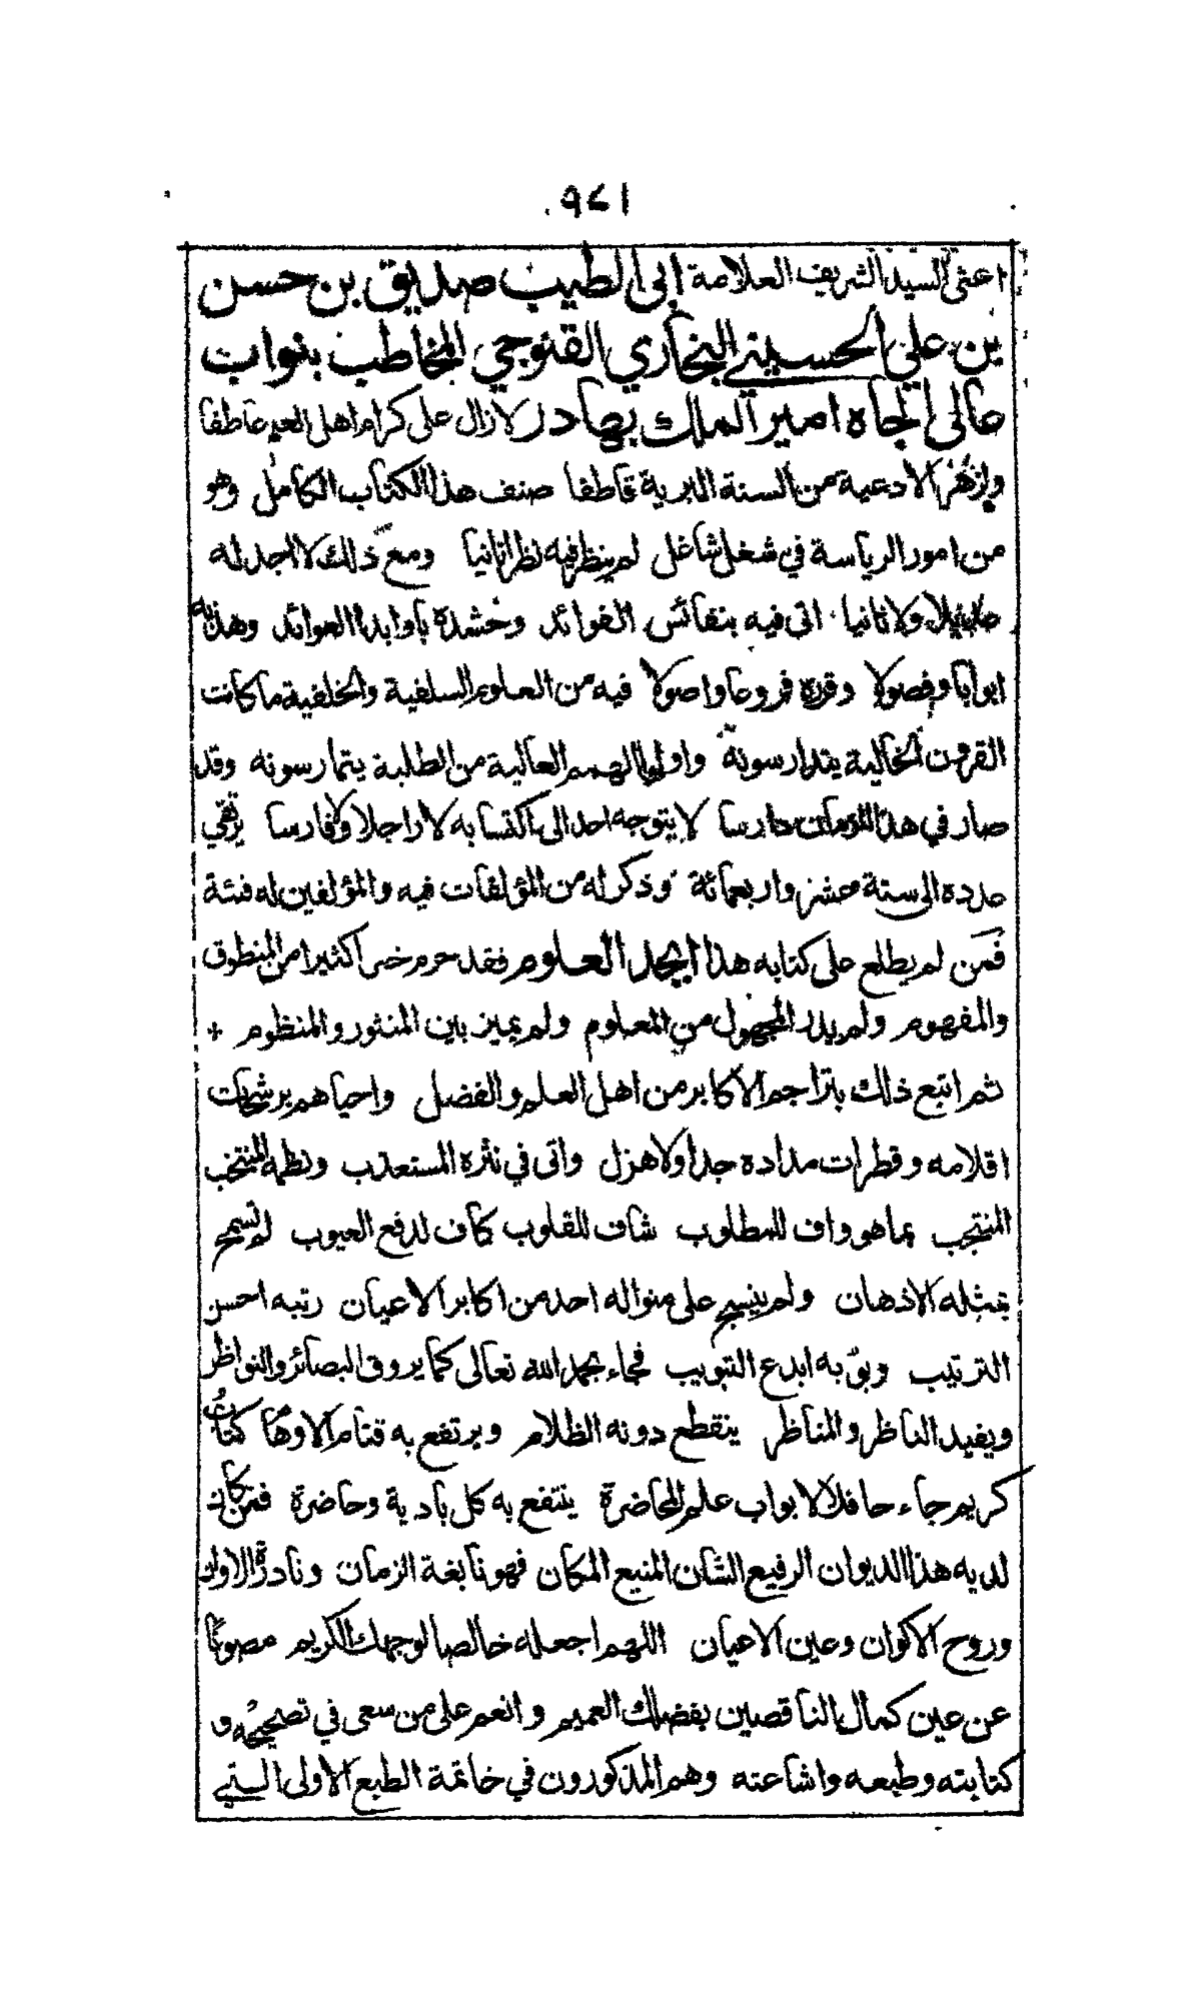 ٩٧١
اعنى السيد الشريف العلامة ابى الطيب صديق بن حسن
بن على الحسينى البخاري القنوجي المخاطب بنواب
عالى الجاه امير الملك بهادر لازال على كرام اهل العلم عاطفا
ولزهر الادعية من السنة البرية قاطفا صنف هذا الكتاب الكامل وهو
من امور الرياسة في شغل شاغل لم ينظر فيه نظرا ثانيا ومع ذلك لا اجد له
مثيلا ولا ثانيا اتى فيه بنفائس الفوائد وحشده باوابد العوائد وهذبه
ابوابا وفصولا وقرره فروعا واصولا فيه من العلوم السلفية والخلفية ما كانت
القرون الخالية يتدارسونه واولوا الهمم العالية من الطلبة يتمارسونه وقد
صار في هذا الزمان دارسا لا يتوجه احد الى اكتسابه لا راجلا ولا فارسا يرتقي
عدده الى ستة عشر واربعمائة وذكر له من المؤلفات فيه والمؤلفين له فئة
فمن لم يطلع على كتابه هذا ابجد العلوم فقد حرم خيرا كثيرا من المنطوق
والمفهوم ولم يدر المجهول من المعلوم ولم يميز بين المنثور والمنظوم +
ثم اتبع ذلك بتراجم الاكابر من اهل العلم والفضل واحياهم برشحات
اقلامه وقطرات مداده جدا ولا هزل واتى في نثره المستعذب ونظمه المنتخب
المنتجب بما هو واف للمطلوب شاف للقلوب كاف لدفع العيوب لم تسمح
بمثله الاذهان ولم ينسج على منواله احد من اكابر الاعيان رتبه احسن
الترتيب وبوّبه ابدع التبويب فجاء بحمد الله تعالى كما يروق البصائر والنواظر
ويفيد الناظر والمناظر ينقطع دونه الظلام ويرتفع به قتام الاوهام كتاب
كريم جاء حافلا لابواب علم المحاضرة ينتفع به كل بادية وحاضرة فمن كان
لديه هذا الديوان الرفيع الشان المنيع المكان فهو نابغة الزمان ونادرة الاوان
وروح الاكوان وعين الاعيان اللهم اجعله خالصا لوجهك الكريم مصونا
عن عين كمال الناقصين بفضلك العميم وانعم على من سعى في تصحيحه و
كتابته وطبعه واشاعته وهم المذكورون في خاتمة الطبع الاولى التي